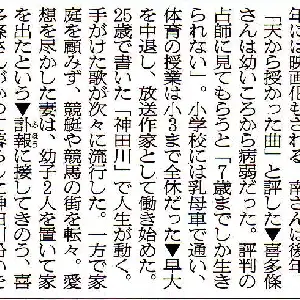 年にに映画化もされる。南さんは後年
「天から授かった曲」と評した▼喜多條
さんは幼いころから病弱だった。評判の
占師に見てもらうと「7歳までしか生き
られない」。小学校には乳母車で通い、
体育の授業は小3まで全休だった▼早大
を中退し、放送作家として働き始めた。
25歳で書いた「神田川」で人生が動く。
手がけた歌が次々に流行した。一方で家
庭を顧みず、競艇や競馬の街を転々。愛
想を尽かした妻は、幼子2人を置いて家
を出たという▼訃報に接してきのう、喜